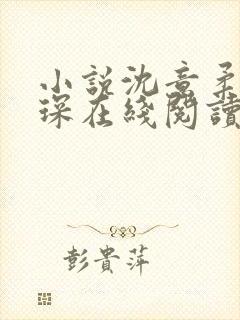 小説沈意柔
琛在綫閱讀
彭貴萍